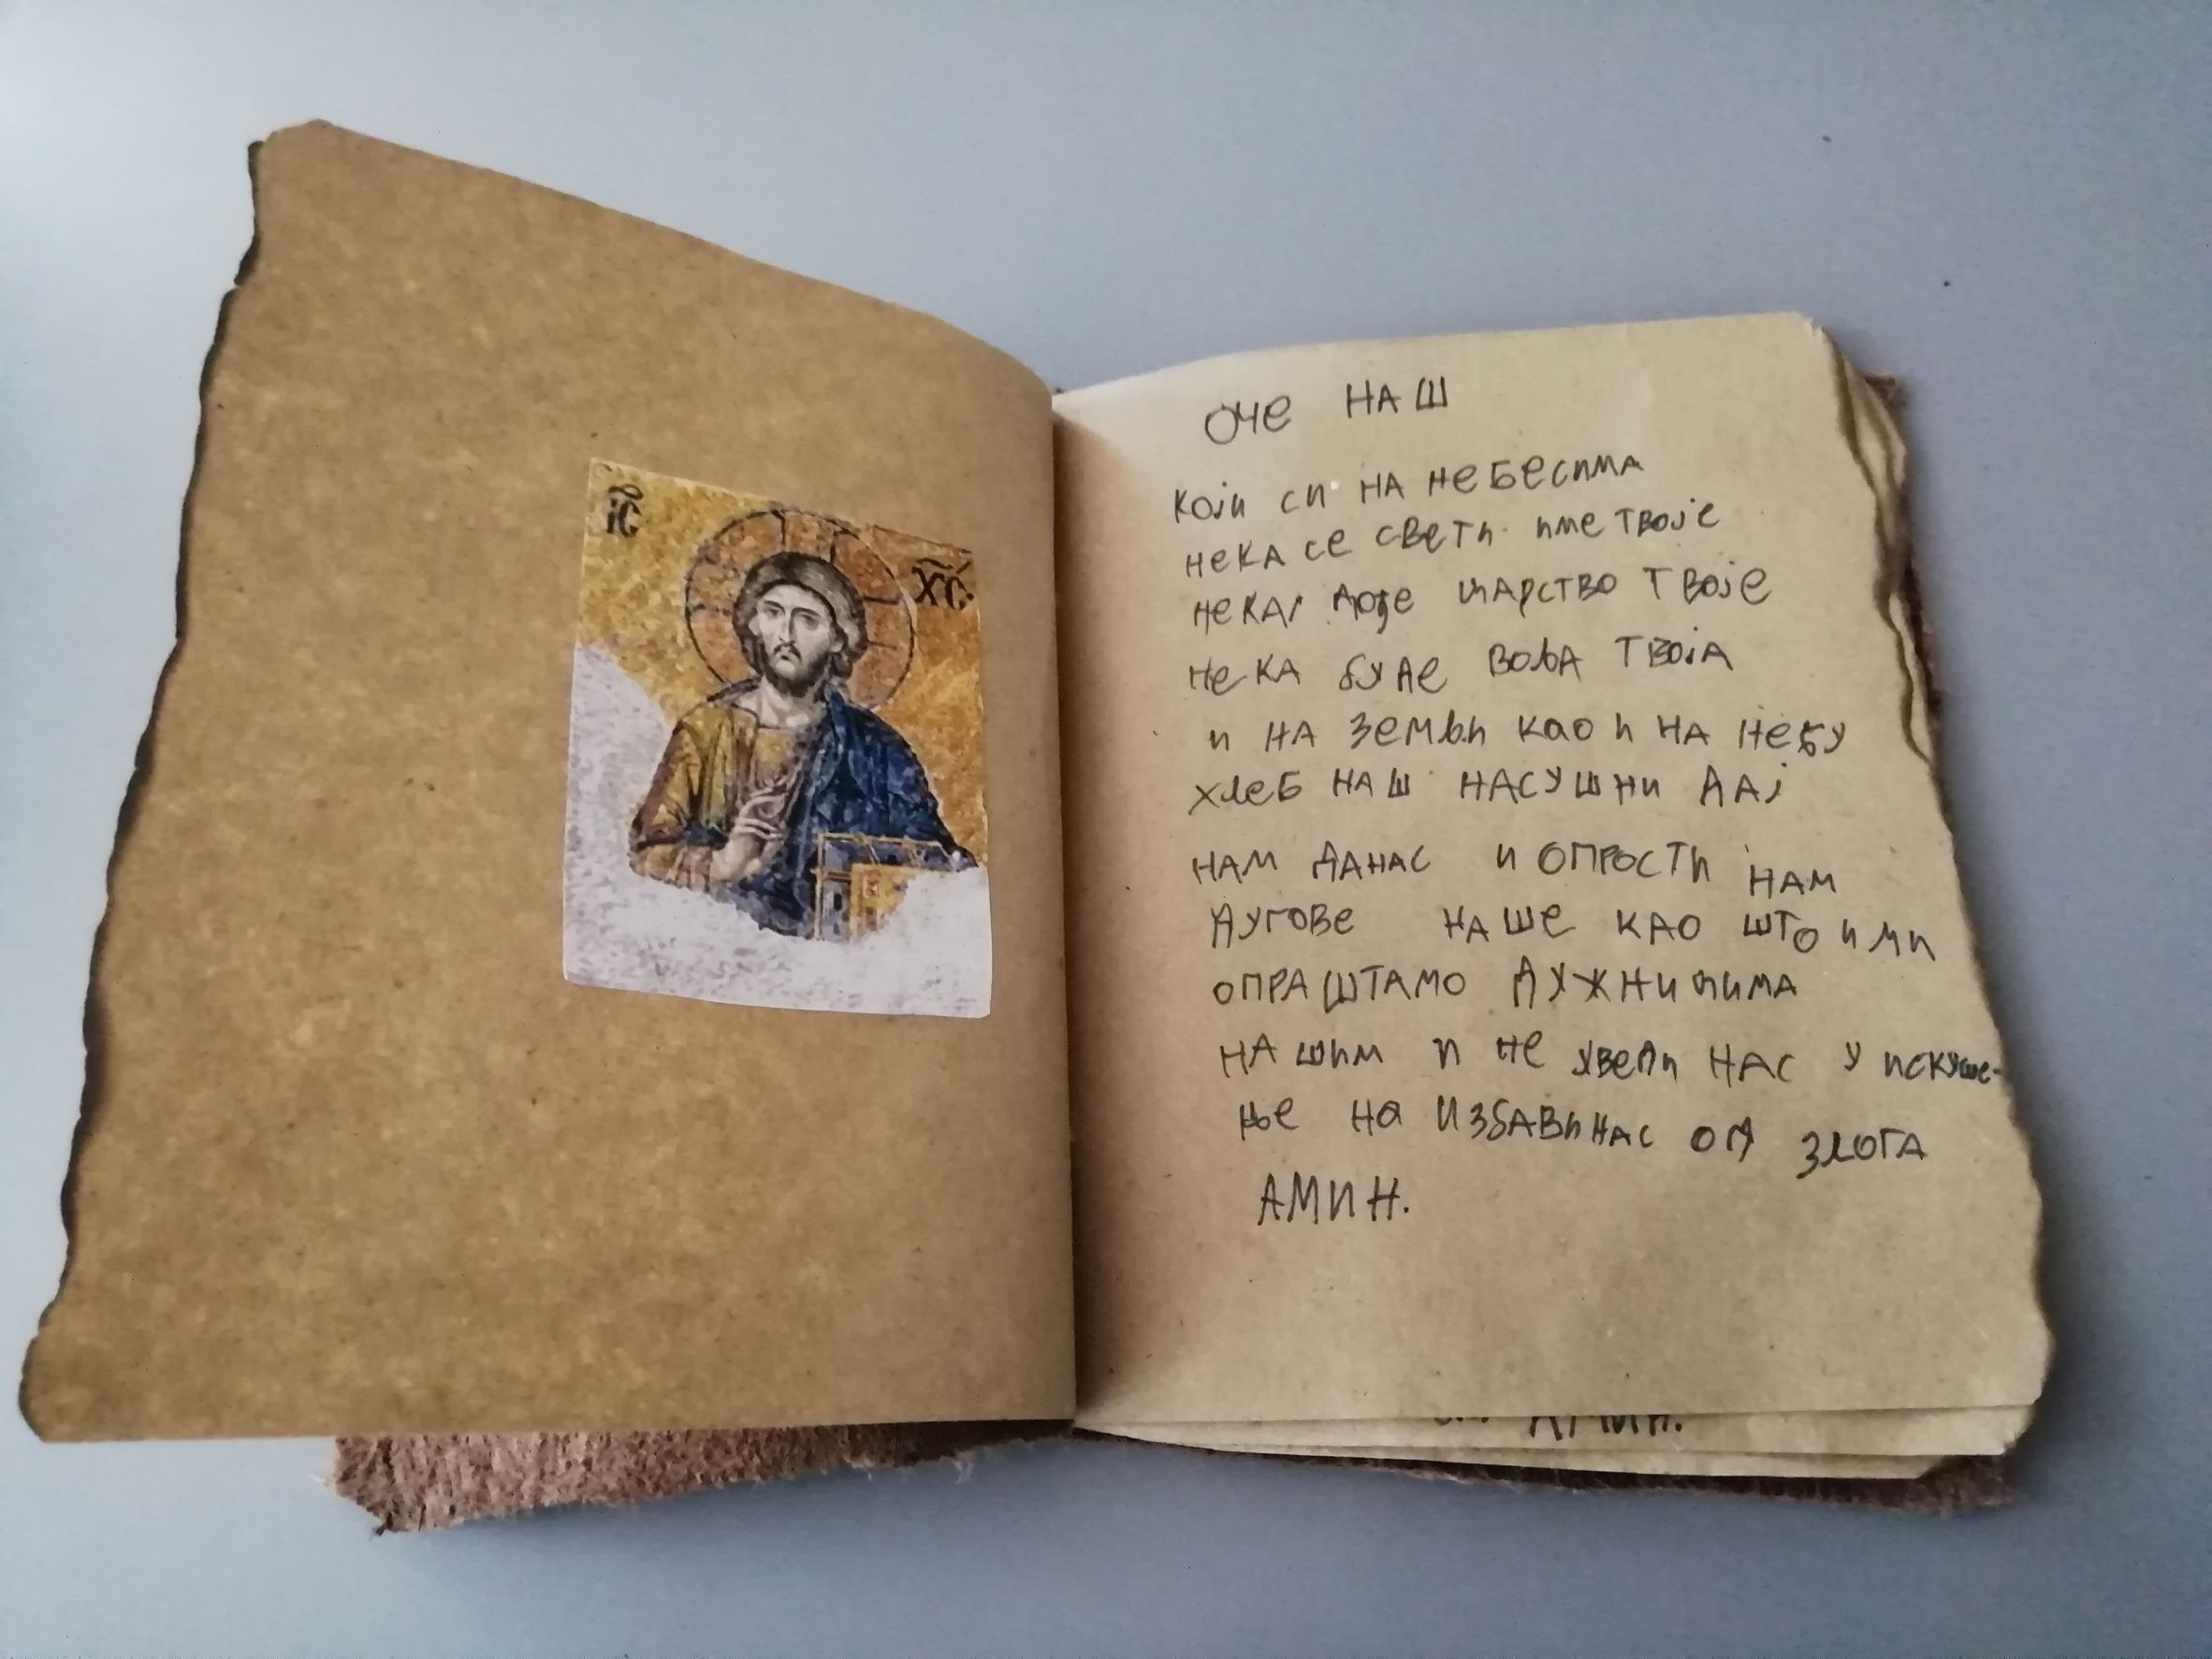 ІС
ХС
ОЧЕ НАШ
КОЈИ СИ НА НЕБЕСИМА
НЕКА СЕ СВЕТИ ИМЕ ТВОЈЕ
НЕКАГ ДОЂЕ ЦАРСТВО ТВОЈЕ
НЕКА БУДЕ ВОЉА ТВОЈА
И НА ЗЕМЉИ КАО И НА НЕБУ
ХЛЕБ НАШ НАСУШНИ ДАЈ
НАМ ДАНАС И ОПРОСТИ НАМ
ДУГОВЕ НАШЕ КАО ШТО И МИ
ОПРАШТАМО ДУЖНИЦИМА
НАШИМ И НЕ УВЕДИ НАС У ИСКУШЕ-
ЊЕ НА ИЗБАВИ НАС ОД ЗЛОГА
АМИН.
АМИН.